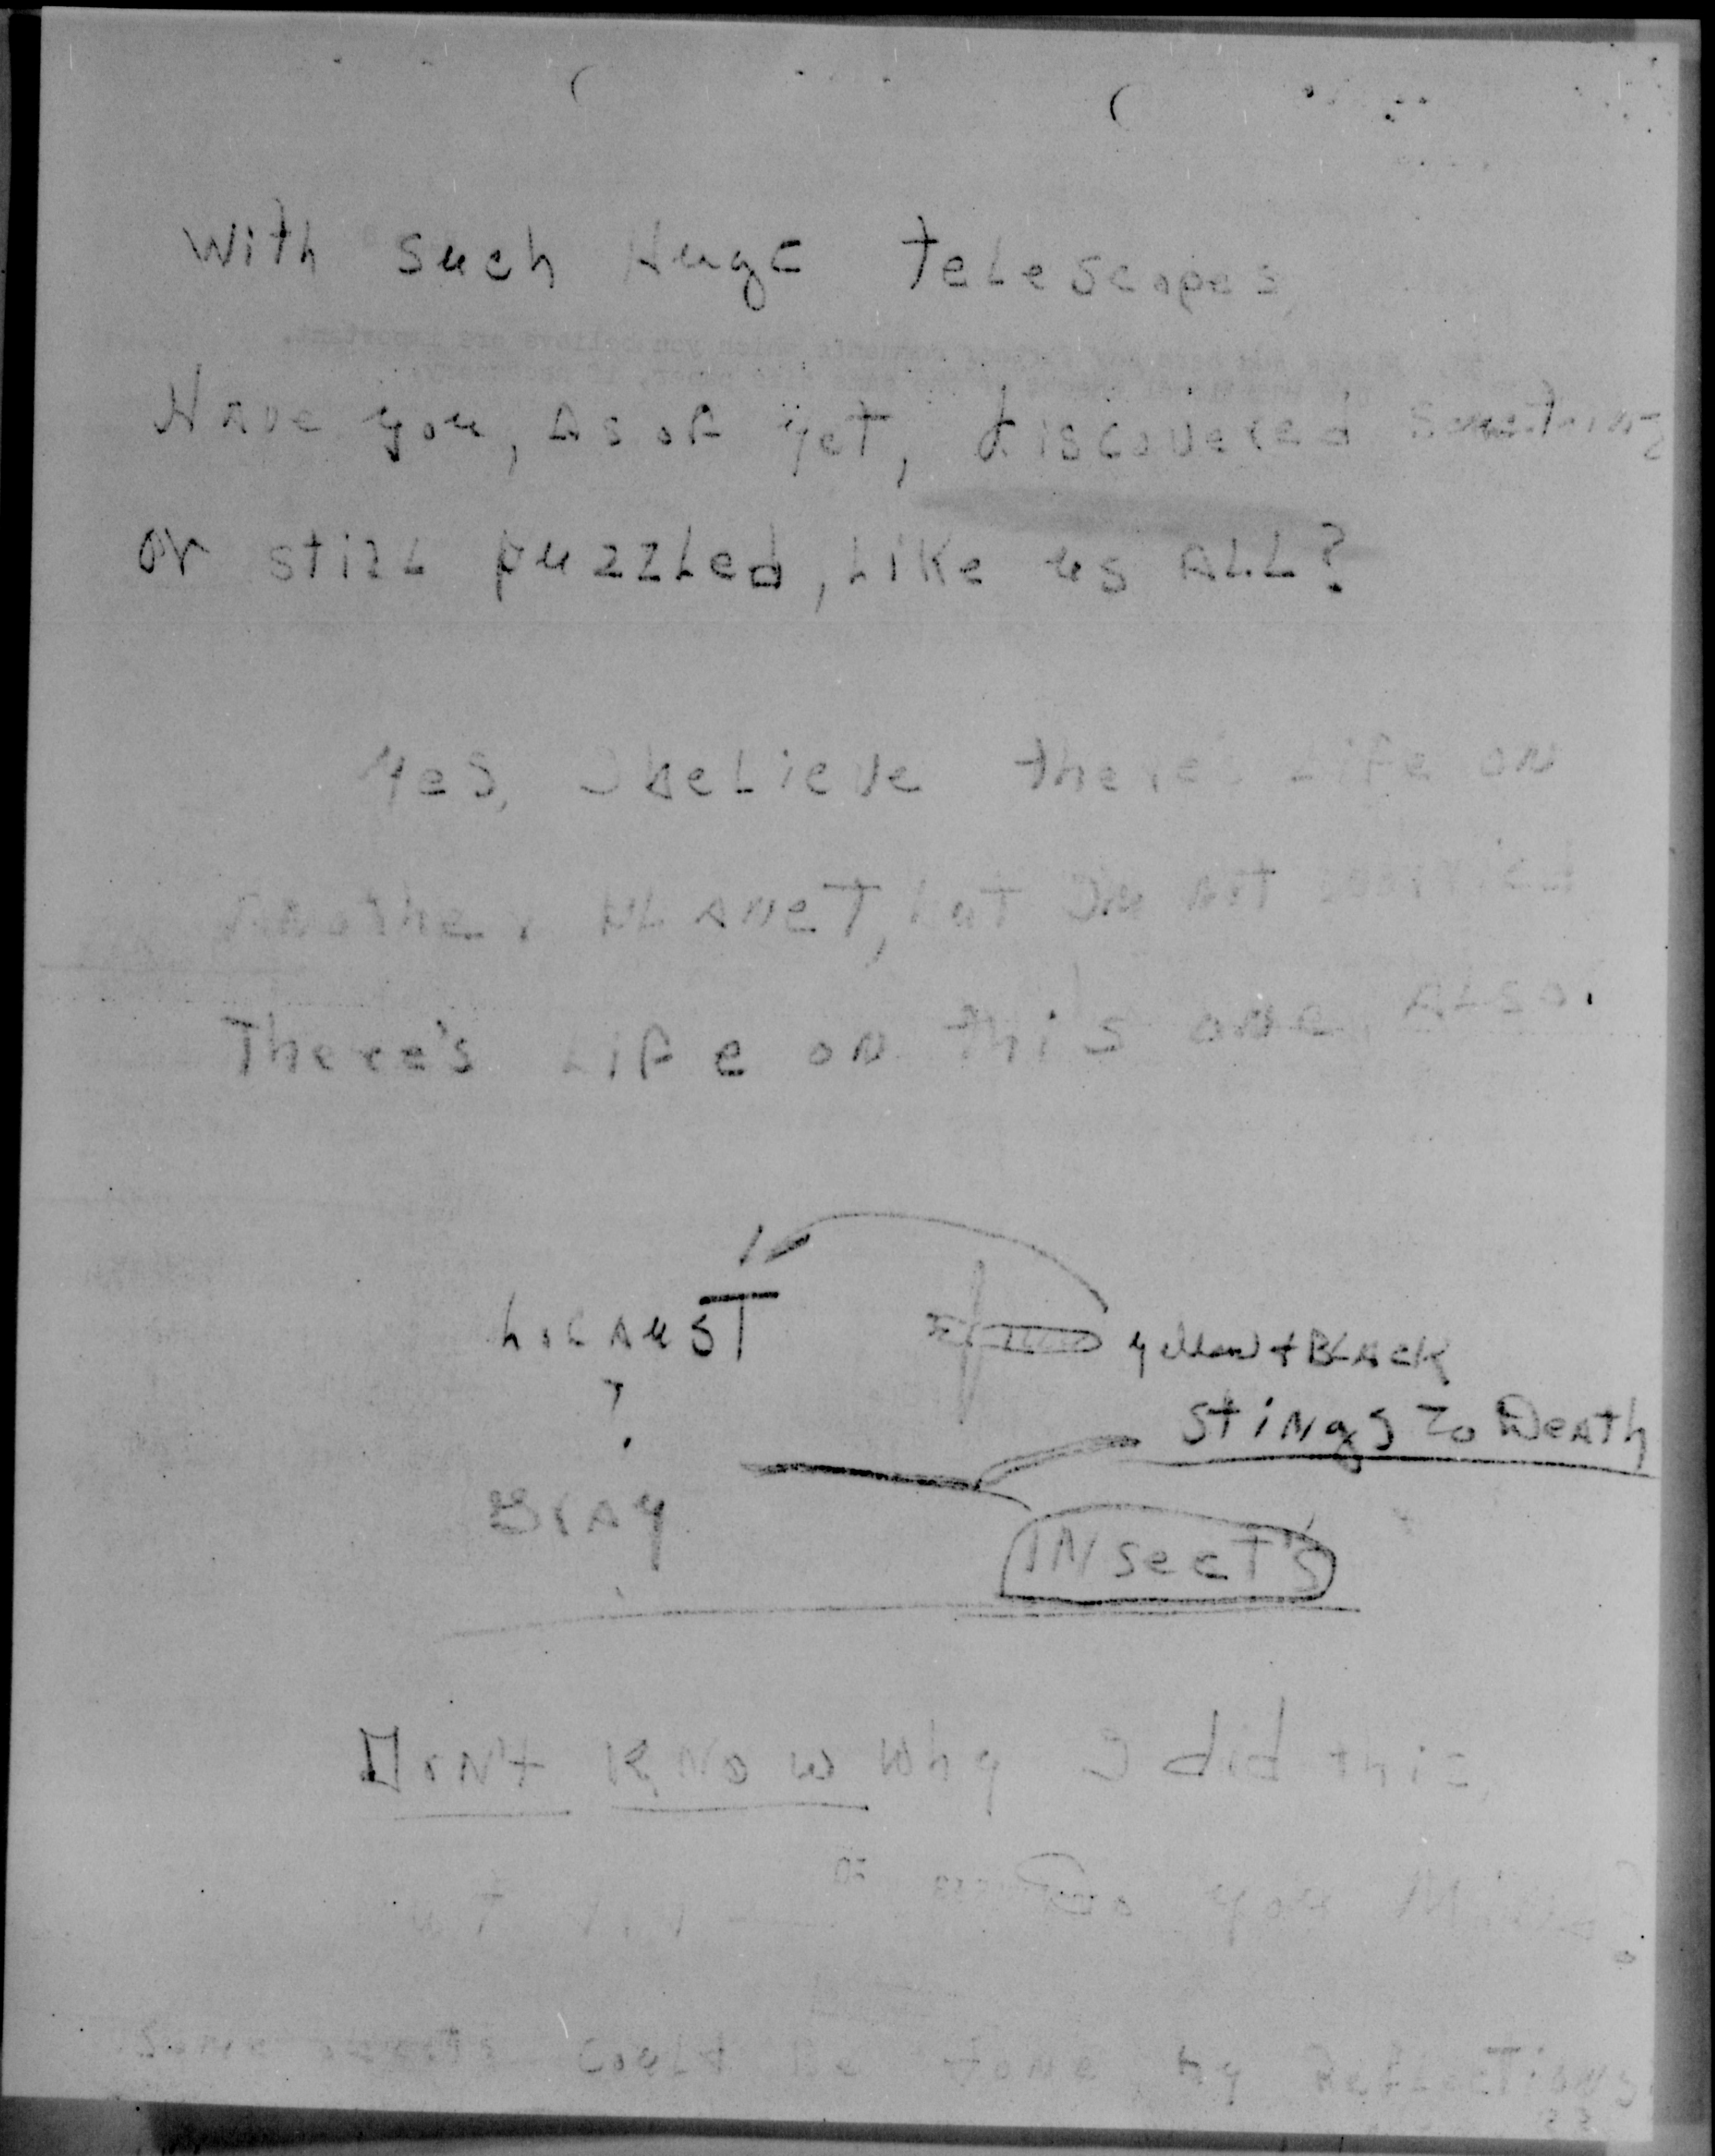 With such Huge telescopes
Have you, as of yet, discovered something
or still puzzled, Like us ALL?
Yes, I believe there's Life on
Another PLANET, but I'm not surprised
There's Life on this one, ALSO.
LocAust
yellow + BLACK
Stings To Death
?
Gray
INsecT's
Don't KNow Why I did this
Do you Mind?
Some could be done by ReflecTions